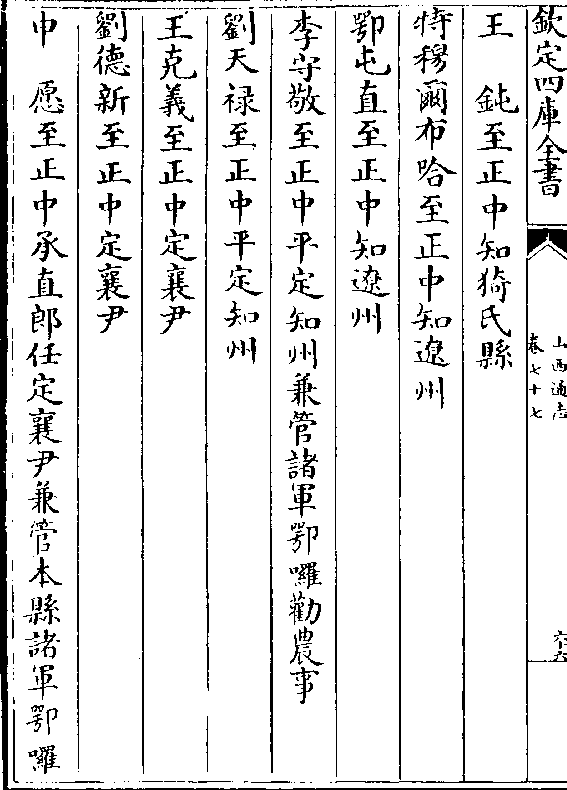 欽定四庫全書
山西通志
卷七十七
六六
王　鈍至正中知猗氏縣
特穆爾布哈至正中知遼州
鄂屯直至正中知遼州
李守敬至正中平定知州兼管諸軍鄂囉勸農事
劉天祿至正中平定知州
王克義至正中定襄尹
劉德新至正中定襄尹
申　愿至正中承直郎任定襄尹兼管本縣諸軍鄂囉